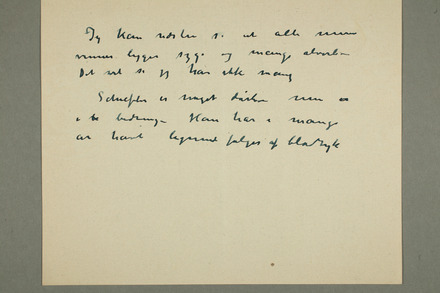 Jeg kan næsten si at alle mine
venner ligger syge og mange alvorlig
Det vil si jeg har ikke mang
Schiefler er meget dårlig men er
i bedring. Han har i mange
år havt lignende følger af blodtryk